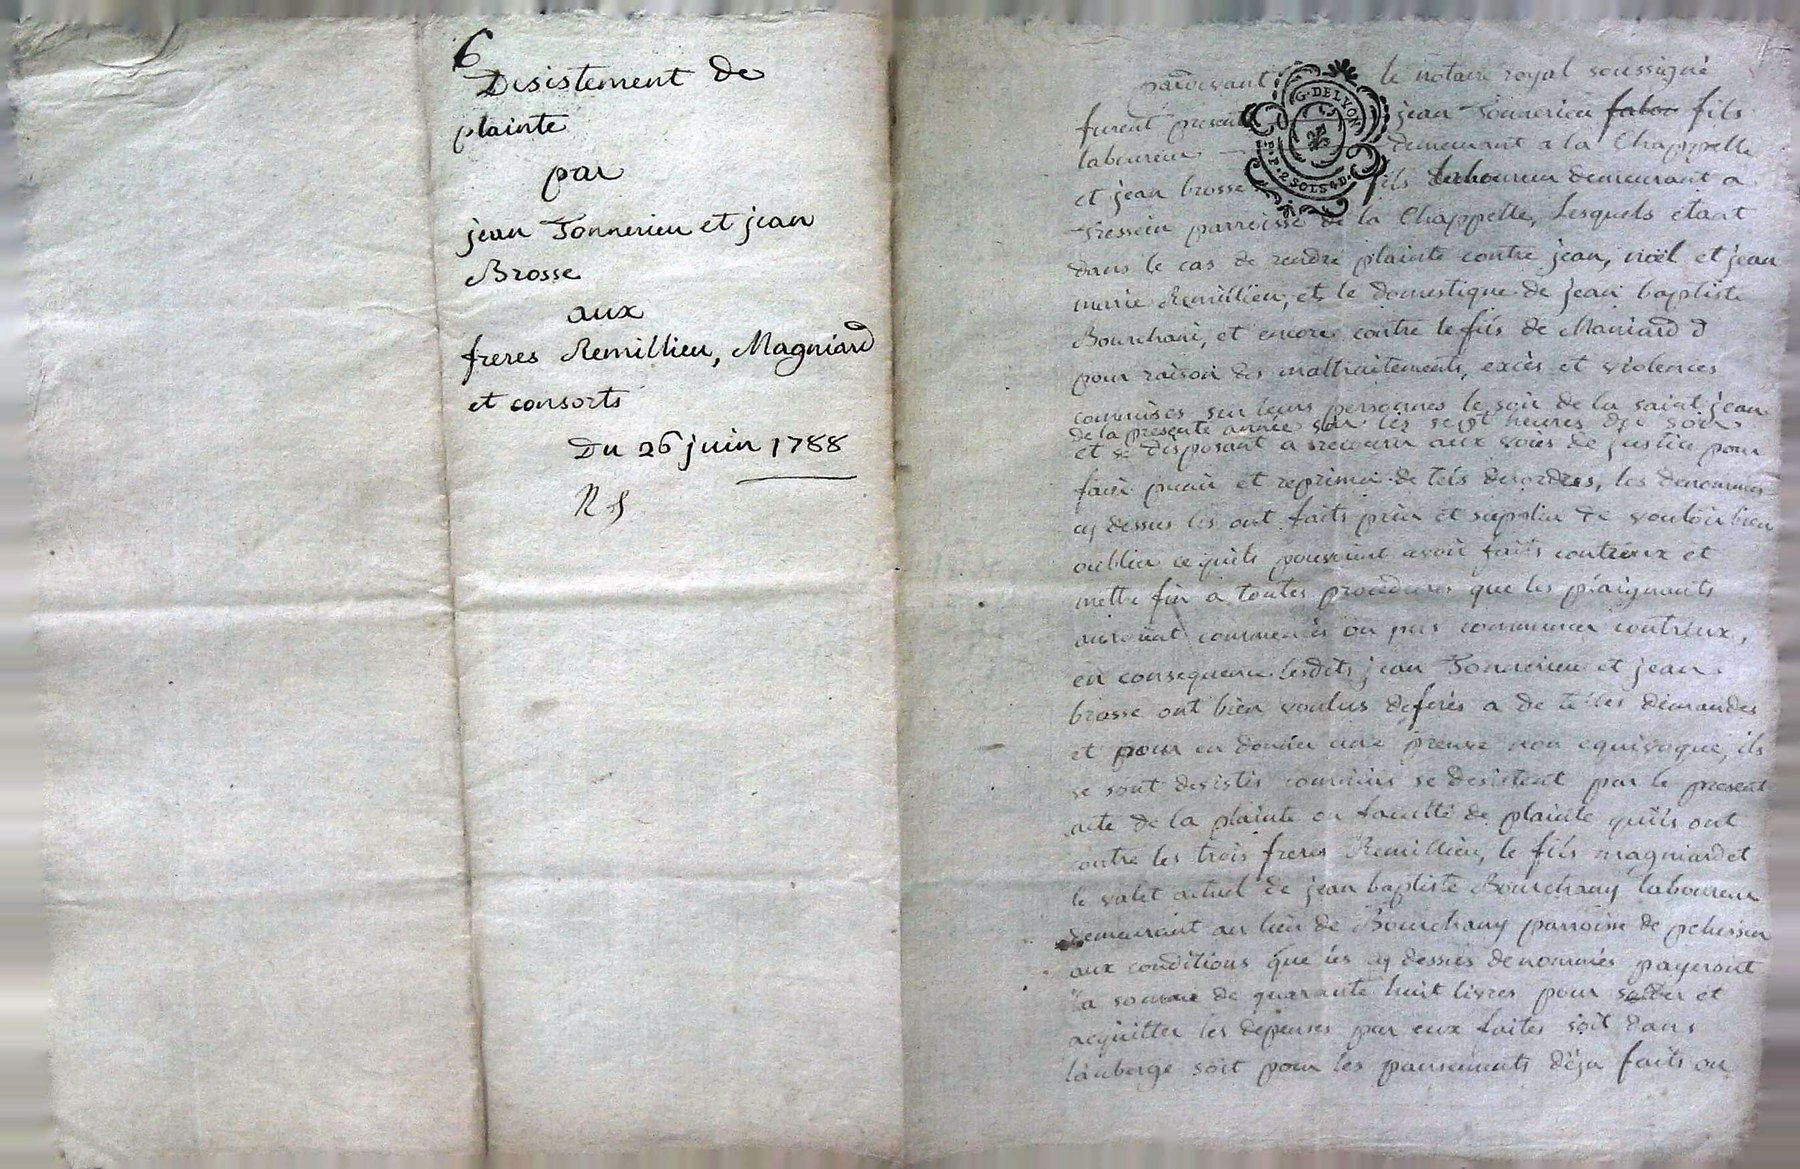 6
Desistement de
plainte
par
jean Tonnerieu et jean
Brosse
aux
freres Remillieu, Magniard
et consorts
Du 26 juin 1788
pardevant le notaire royal soussigné
furent presens jean Tonnerieu fils
laboureur demeurant a la Chappelle
et jean brosse fils laboureur demeurant a
parroisse de la Chappelle, Lesquels étant
dans le cas de rendre plainte contre jean, noël et jean
marie Remillieu, et le domestique de jean baptiste
Bourchani, et encore contre le fils de Maniard
pour raison des maltraitements, exces et violences
commises sur leurs personnes le soir de la saint jean
de la presente année sur les sept heures du soir
et se disposant a recourir aux voies de justice pour
faire punir et reprimer de tels desordres, les denommés
cy dessus les ont faits prier et suplier de vouloir bien
oublier ce quils pouvoient avoir faits contreux et
mettre fin a toutes procedures que les plaignants
auroient commencés ou pus commencer contreux,
en consequence lesdits jean Tonnerieu et jean
brosse ont bien voulus deferés a de telles demandes
et pour en donner une preuve non equivoque, ils
se sont desistés comme ils se desistent par le present
acte de la plainte ou faculté de plainte quils ont
contre les trois freres Remillieu, le fils magniard et
le valet actuel de jean baptiste Bourchany laboureur
demeurant au lieu de Bourchany parroisse de pelussin
aux conditions que les cy dessus denommés payeront
la somme de quarante huit livres pour solder et
acquitter les depenses par eux faites soit dans
lauberge soit pour les pansements déja faits ou
G. DE LYON
2 SOLS 4 D.